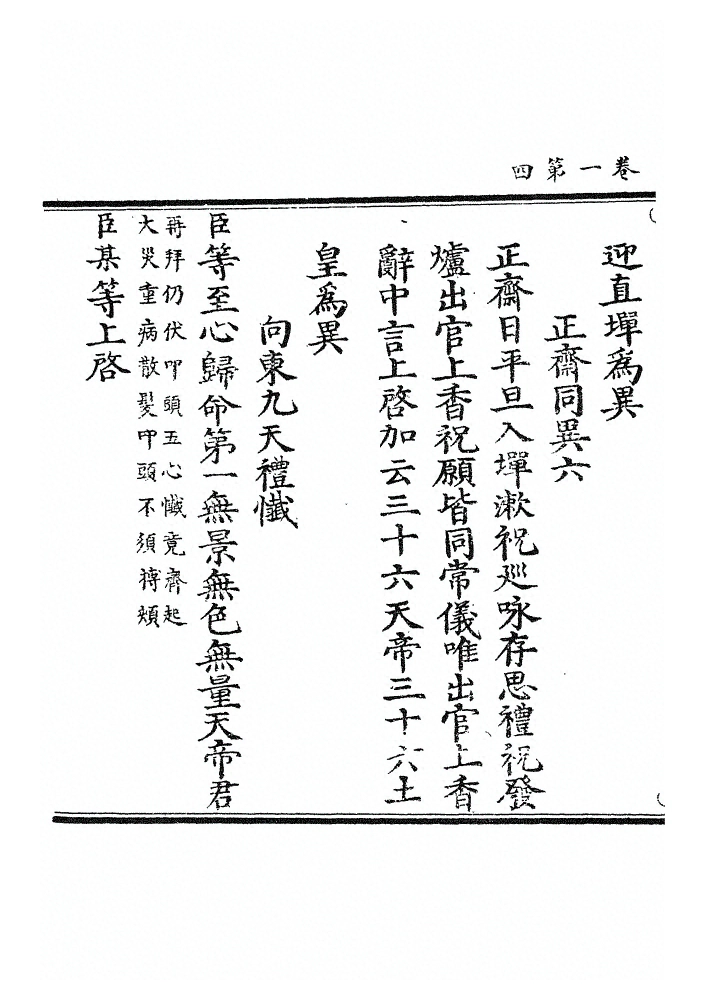 卷一第四
迎直墠爲異
正齋同異六
正齋日平旦入墠漱祝廵咏存思禮祝發
爐出官上香祝願皆同常儀唯出官上香
辭中言上啓加云三十六天帝三十六土
皇爲異
向東九天禮懴
臣等至心歸命第一無景無色無量天帝君
再拜仍伏叩頭五心懴竟齊起
大災重病散髮叩頭不須摶頰
臣某等上啓